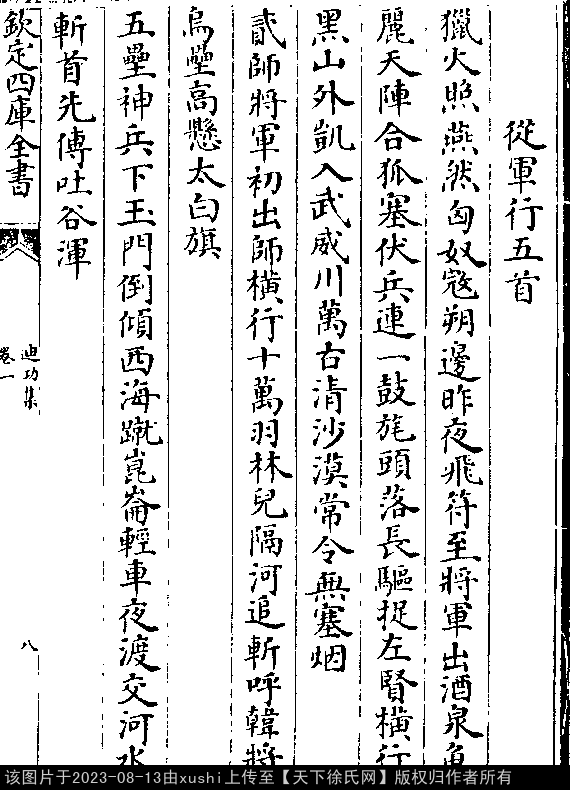 從軍行五首
獵火照燕然匈奴宼朔邊昨夜飛符至將軍出酒泉魚
麗天陣合狐塞伏兵連一鼓旄頭落長驅捉左賢橫行
黑山外凱入武威川萬古清沙漠常令無塞烟
貳師將軍初出師橫行十萬羽林兒隔河追斬呼韓將
烏壘高懸太白旗
五壘神兵下玉門倒傾西海蹴崑崙輕車夜渡交河水
斬首先傳吐谷渾
欽定四庫全書
迪功集
卷一
八
该图片于2023-08-13由xushi上传至【天下徐氏网】版权归作者所有